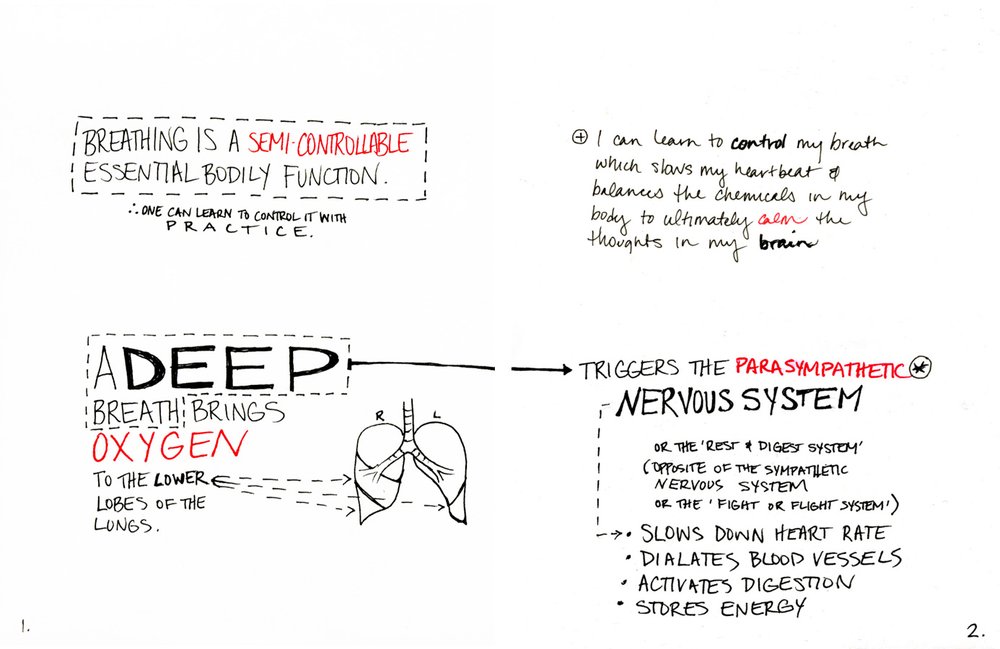 BREATHING IS A SEMI-CONTROLLABLE
ESSENTIAL BODILY FUNCTION.
∴ ONE CAN LEARN TO CONTROL IT WITH
PRACTICE.
A DEEP
BREATH BRINGS
OXYGEN
TO THE LOWER
LOBES OF THE
LUNGS.
R L
1.
⊕ I can learn to control my breath
which slows my heartbeat &
balances the chemicals in my
body to ultimately calm the
thoughts in my brain
TRIGGERS THE PARASYMPATHETIC *
NERVOUS SYSTEM
OR THE 'REST & DIGEST SYSTEM'
(OPPOSITE OF THE SYMPATHETIC
NERVOUS SYSTEM
OR THE 'FIGHT OR FLIGHT SYSTEM')
• SLOWS DOWN HEART RATE
• DIALATES BLOOD VESSELS
• ACTIVATES DIGESTION
• STORES ENERGY
2.